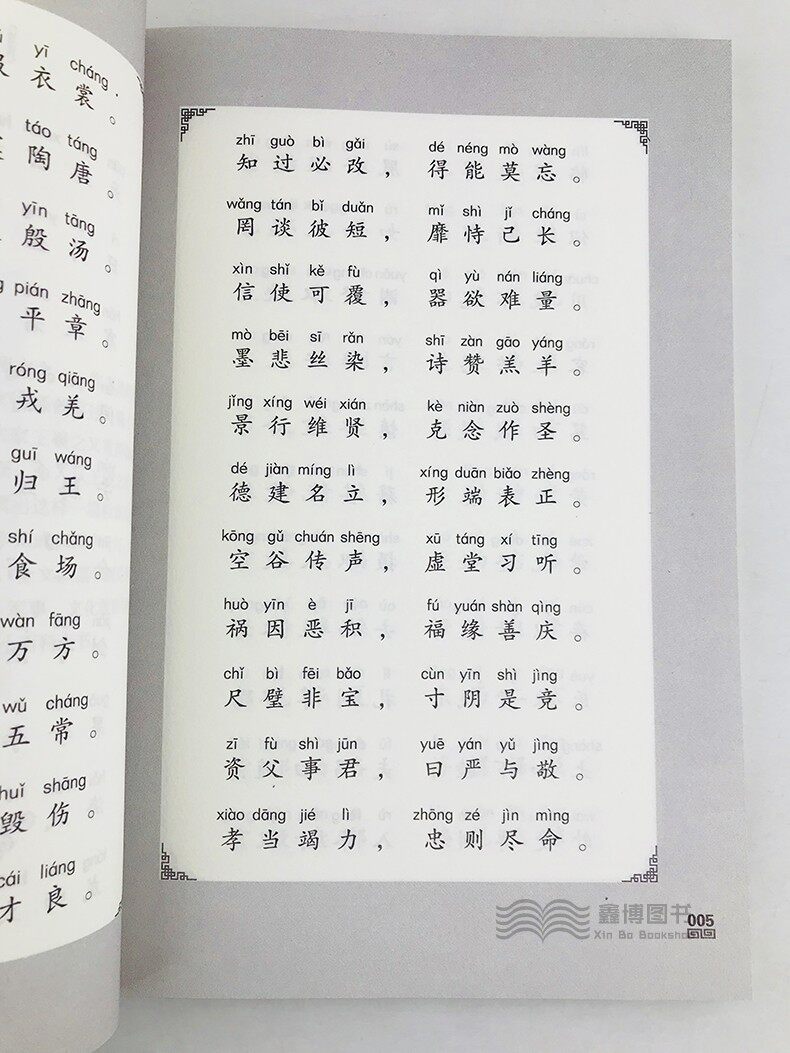 yī cháng
衣裳。
táo táng
陶唐。
yīn tāng
殷汤。
pián zhāng
平章。
róng qiāng
戎羌。
guī wáng
归王。
shí chǎng
食场。
wàn fāng
万方。
wǔ cháng
五常。
huǐ shāng
毁伤。
cái liáng
才良。
zhī guò bì gǎi dé néng mò wàng
知过必改，得能莫忘。
wǎng tán bǐ duǎn mǐ shì jǐ cháng
罔谈彼短，靡恃己长。
xìn shǐ kě fù qì yù nán liáng
信使可覆，器欲难量。
mò bēi sī rǎn shī zàn gāo yáng
墨悲丝染，诗赞羔羊。
jǐng xíng wéi xián kè niàn zuò shèng
景行维贤，克念作圣。
dé jiàn míng lì xíng duān biǎo zhèng
德建名立，形端表正。
kōng gǔ chuán shēng xū táng xí tīng
空谷传声，虚堂习听。
huò yīn è jī fú yuán shàn qìng
祸因恶积，福缘善庆。
chǐ bì fēi bǎo cùn yīn shì jìng
尺璧非宝，寸阴是竞。
zī fù shì jūn yuē yán yǔ jìng
资父事君，曰严与敬。
xiào dāng jié lì zhōng zé jìn mìng
孝当竭力，忠则尽命。
鑫博图书
Xin Bo Bookshop
005